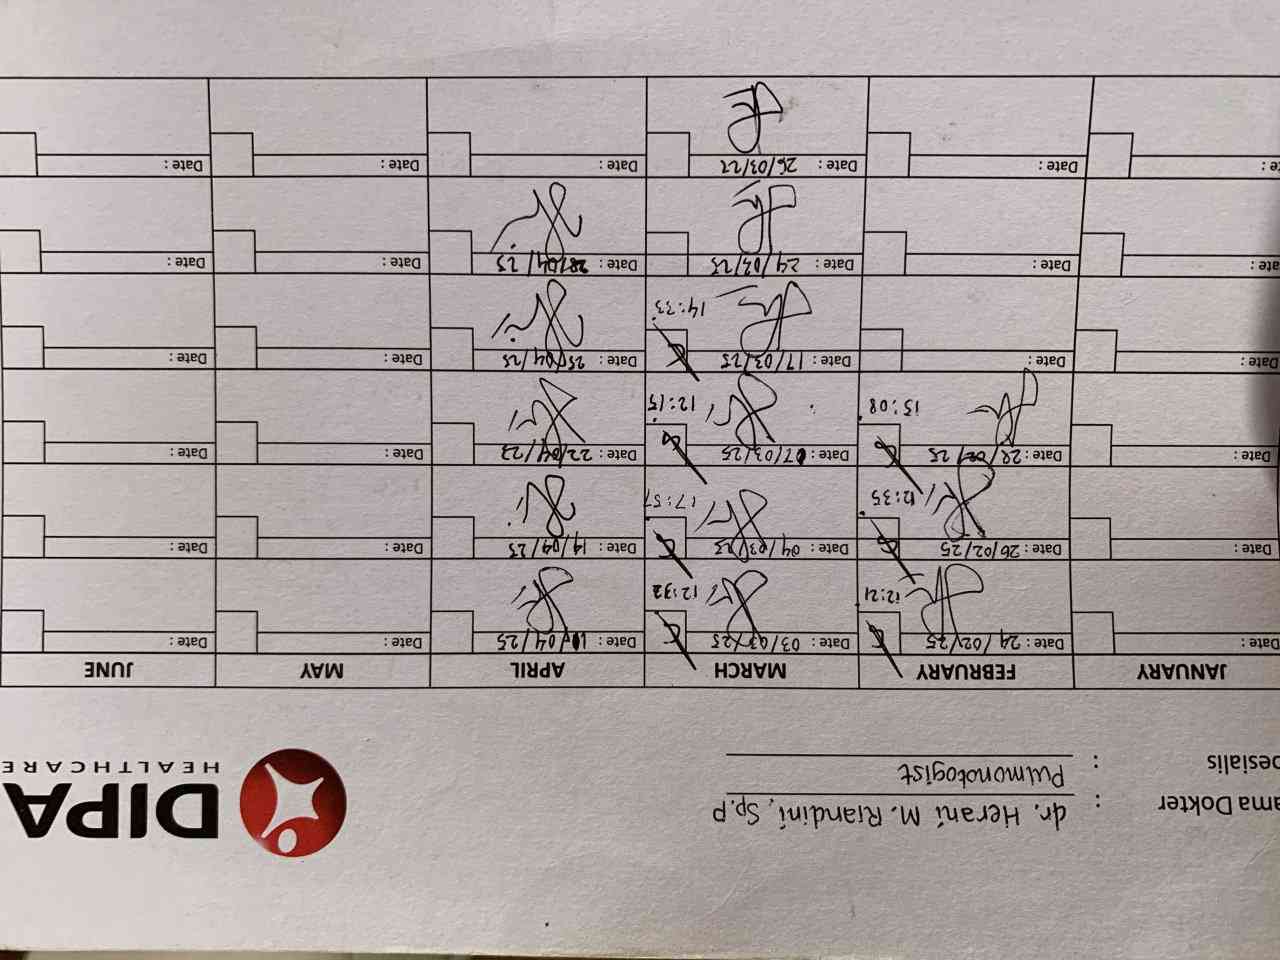 ama Dokter : dr. Herani M. Riandini, Sp.P
pesialis : Pulmonologist
DIPA
HEALTHCARE
JANUARY FEBRUARY MARCH APRIL MAY JUNE
Date : Date : 24/02/25 Date : 03/03/25 Date : /04/25 Date : Date :
12:21 12:32
Date : Date : 26/02/25 Date : 04/03/25 Date : 14/04/25 Date : Date :
12:35 17:57
Date : Date : 28/02/25 Date : 07/03/25 Date : 22/04/ Date : Date :
15:08 12:15
Date : Date : Date : 17/03/25 Date : 25/04/25 Date : Date :
14:33
ate : Date : Date : 24/03/25 Date : 28/04/25 Date : Date :
te : Date : Date : 26/03/ Date : Date : Date :